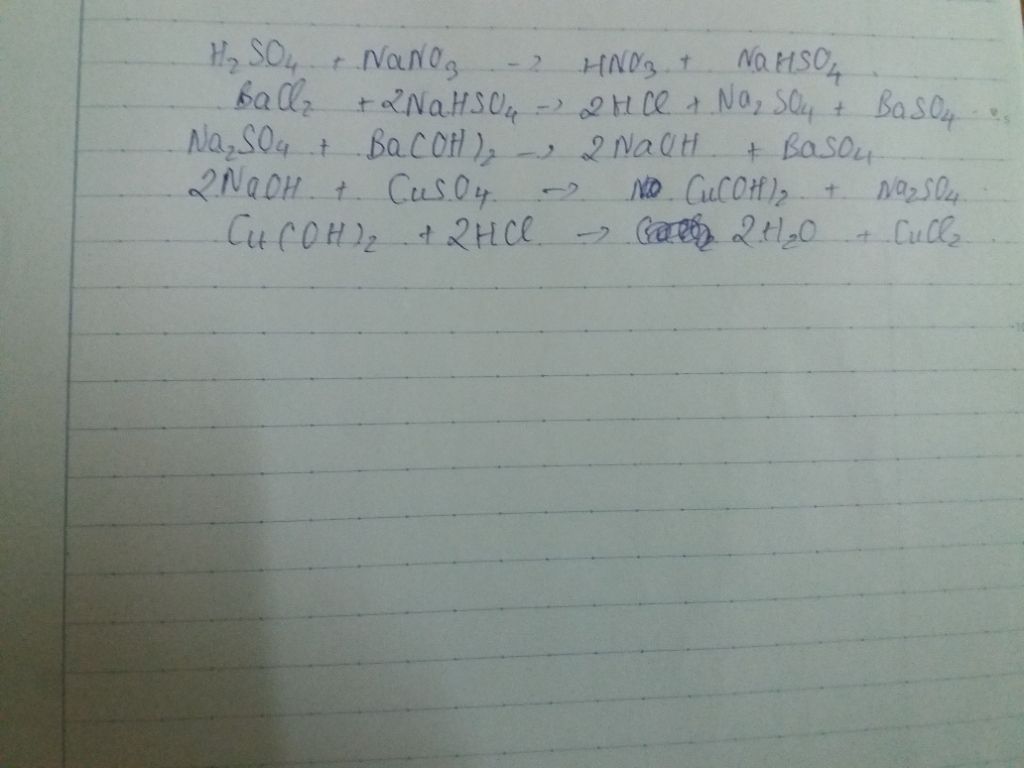 H₂SO₄ + NaNO₃ → HNO₃ + NaHSO₄
BaCl₂ + 2NaHSO₄ → 2HCl + Na₂SO₄ + BaSO₄
Na₂SO₄ + Ba(OH)₂ → 2NaOH + BaSO₄
2NaOH + CuSO₄ → Cu(OH)₂ + Na₂SO₄
Cu(OH)₂ + 2HCl → 2H₂O + CuCl₂